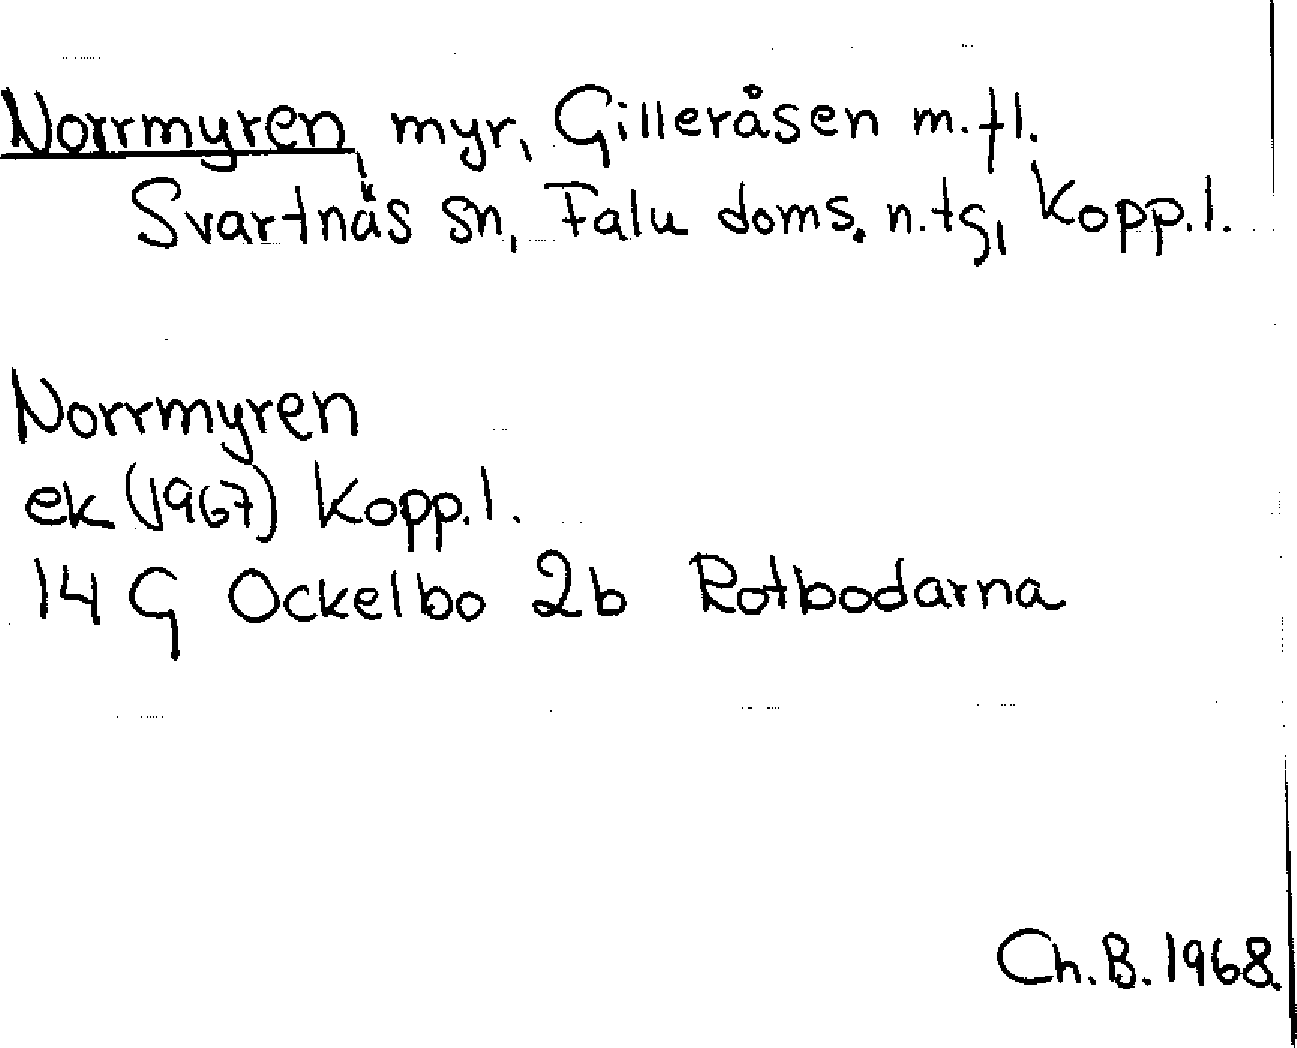 Norrmyren, myr, Gilleråsen m.fl.
Svartnäs sn, Falu doms. n.tg, Kopp.l.
Norrmyren
ek (1967) Kopp.l.
14 G Ockelbo 2b Rotbodarna
Ch.B. 1968.